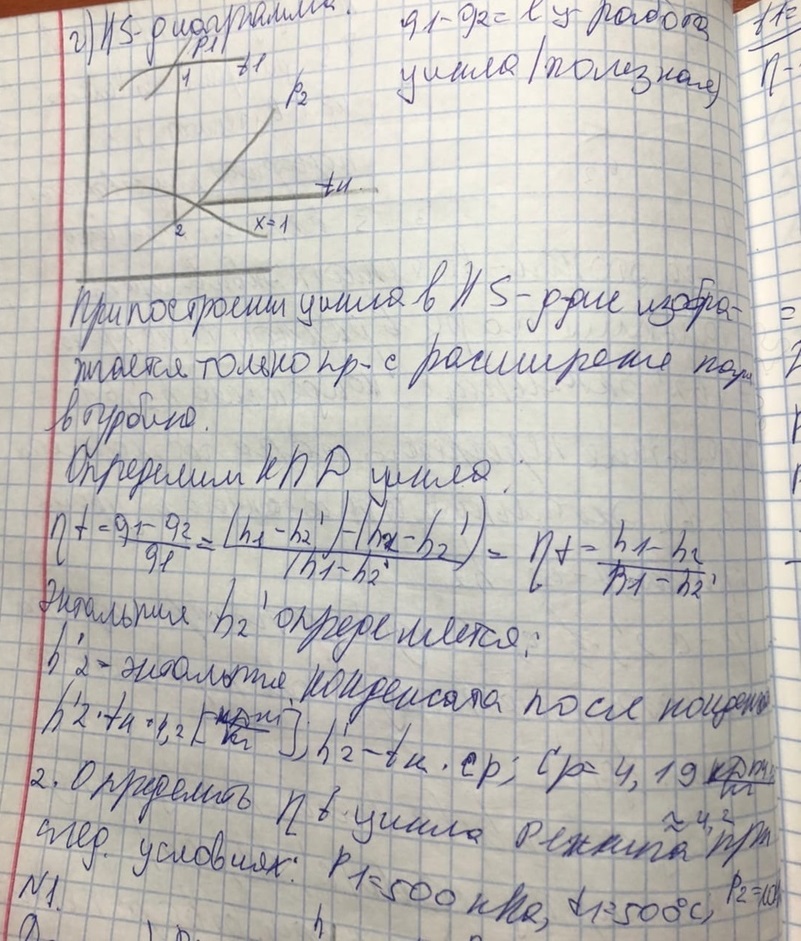 г) HS-диаграмма.
q1-q2 = lц - работа
цикла (полезная)
P1
t1
1
P2
tн
2
x=1
При построении цикла в HS-д-ме изобра-
жается только пр-с расширение пара
в турбине.
Определим КПД цикла:
ηt = q1-q2/q1 = (h1-h2')-(h2-h2')/h1-h2' = ηt = h1-h2/h1-h2'
Энтальпия h2' определяется:
h'2 - энтальпия конденсата после
h'2 = tн · 4,2 [кДж/кг]; h'2 - tн · cp; Cp = 4,19 кДж/кг
≈ 4,2
2. Определить ηt цикла Ренкина при
след. условиях: P1=500 кПа, t1=500°C, P2=10
N1.